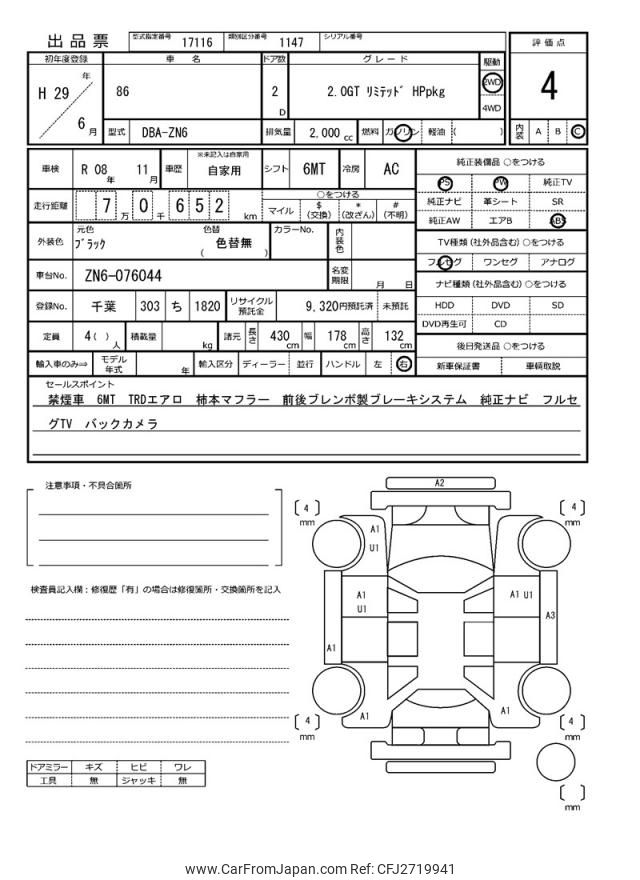 出品票 型式指定番号 17116 類別区分番号 1147 シリアル番号
初年度登録 車 名 ドア数 グレード 駆動 評価点
H 29 年 6 月 86 2 D 2.0GT ﾘﾐﾃｯﾄﾞ HPpkg 2WD 4WD 4
型式 DBA-ZN6 排気量 2,000 cc 燃料 ガソリン 軽油 ( ) 内装 A B C
車検 R 08 年 11 月 車歴 ※未記入は自家用 自家用 シフト 6MT 冷房 AC
純正装備品 ○をつける
PS PW 純正TV
純正ナビ 革シート SR
純正AW エアB ABS
走行距離 7 万 0 千 6 5 2 km ○をつける
マイル $ (交換) * (改ざん) # (不明)
外装色 元色 ﾌﾞﾗｯｸ 色替 ( 色替無 ) カラーNo. 内装色
TV種類 (社外品含む) ○をつける
フルセグ ワンセグ アナログ
車台No. ZN6-076044 名変期限 月 日
ナビ種類 (社外品含む) ○をつける
HDD DVD SD
DVD再生可 CD
登録No. 千葉 303 ち 1820 リサイクル預託金 9,320円預託済 未預託
定員 4( ) 人 積載量 kg 諸元 長さ 430 cm 幅 178 cm 高さ 132 cm
後日発送品 ○をつける
新車保証書 車輌取説
輸入車のみ⇒ モデル年式 年 輸入区分 ディーラー 並行 ハンドル 左 右
セールスポイント
禁煙車 6MT TRDエアロ 柿本マフラー 前後ブレンボ製ブレーキシステム 純正ナビ フルセ
グTV バックカメラ
注意事項・不具合箇所
検査員記入欄：修復歴「有」の場合は修復箇所・交換箇所を記入
A2
4 mm 4 mm
A1
U1
A1
U1
A1 U1
A1
A3
A1 A1
4 mm 4 mm
mm
ドアミラー キズ ヒビ ワレ
工具 無 ジャッキ 無
www.CarFromJapan.com Ref: CFJ2719941